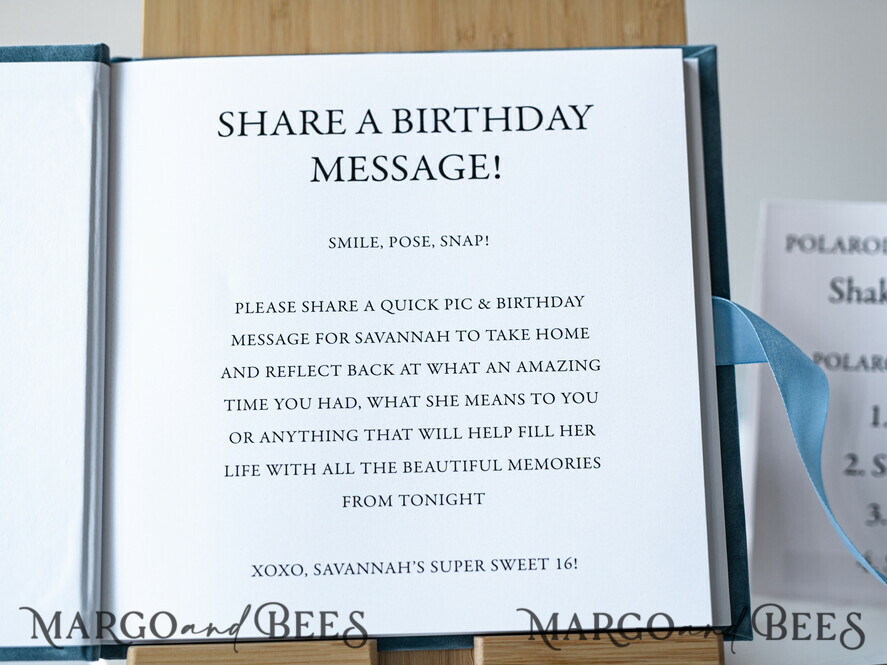 SHARE A BIRTHDAY
MESSAGE!
SMILE, POSE, SNAP!
PLEASE SHARE A QUICK PIC & BIRTHDAY
MESSAGE FOR SAVANNAH TO TAKE HOME
AND REFLECT BACK AT WHAT AN AMAZING
TIME YOU HAD, WHAT SHE MEANS TO YOU
OR ANYTHING THAT WILL HELP FILL HER
LIFE WITH ALL THE BEAUTIFUL MEMORIES
FROM TONIGHT
XOXO, SAVANNAH'S SUPER SWEET 16!
1.
2.
3.
MARGO and BEES
MARGO and BEES